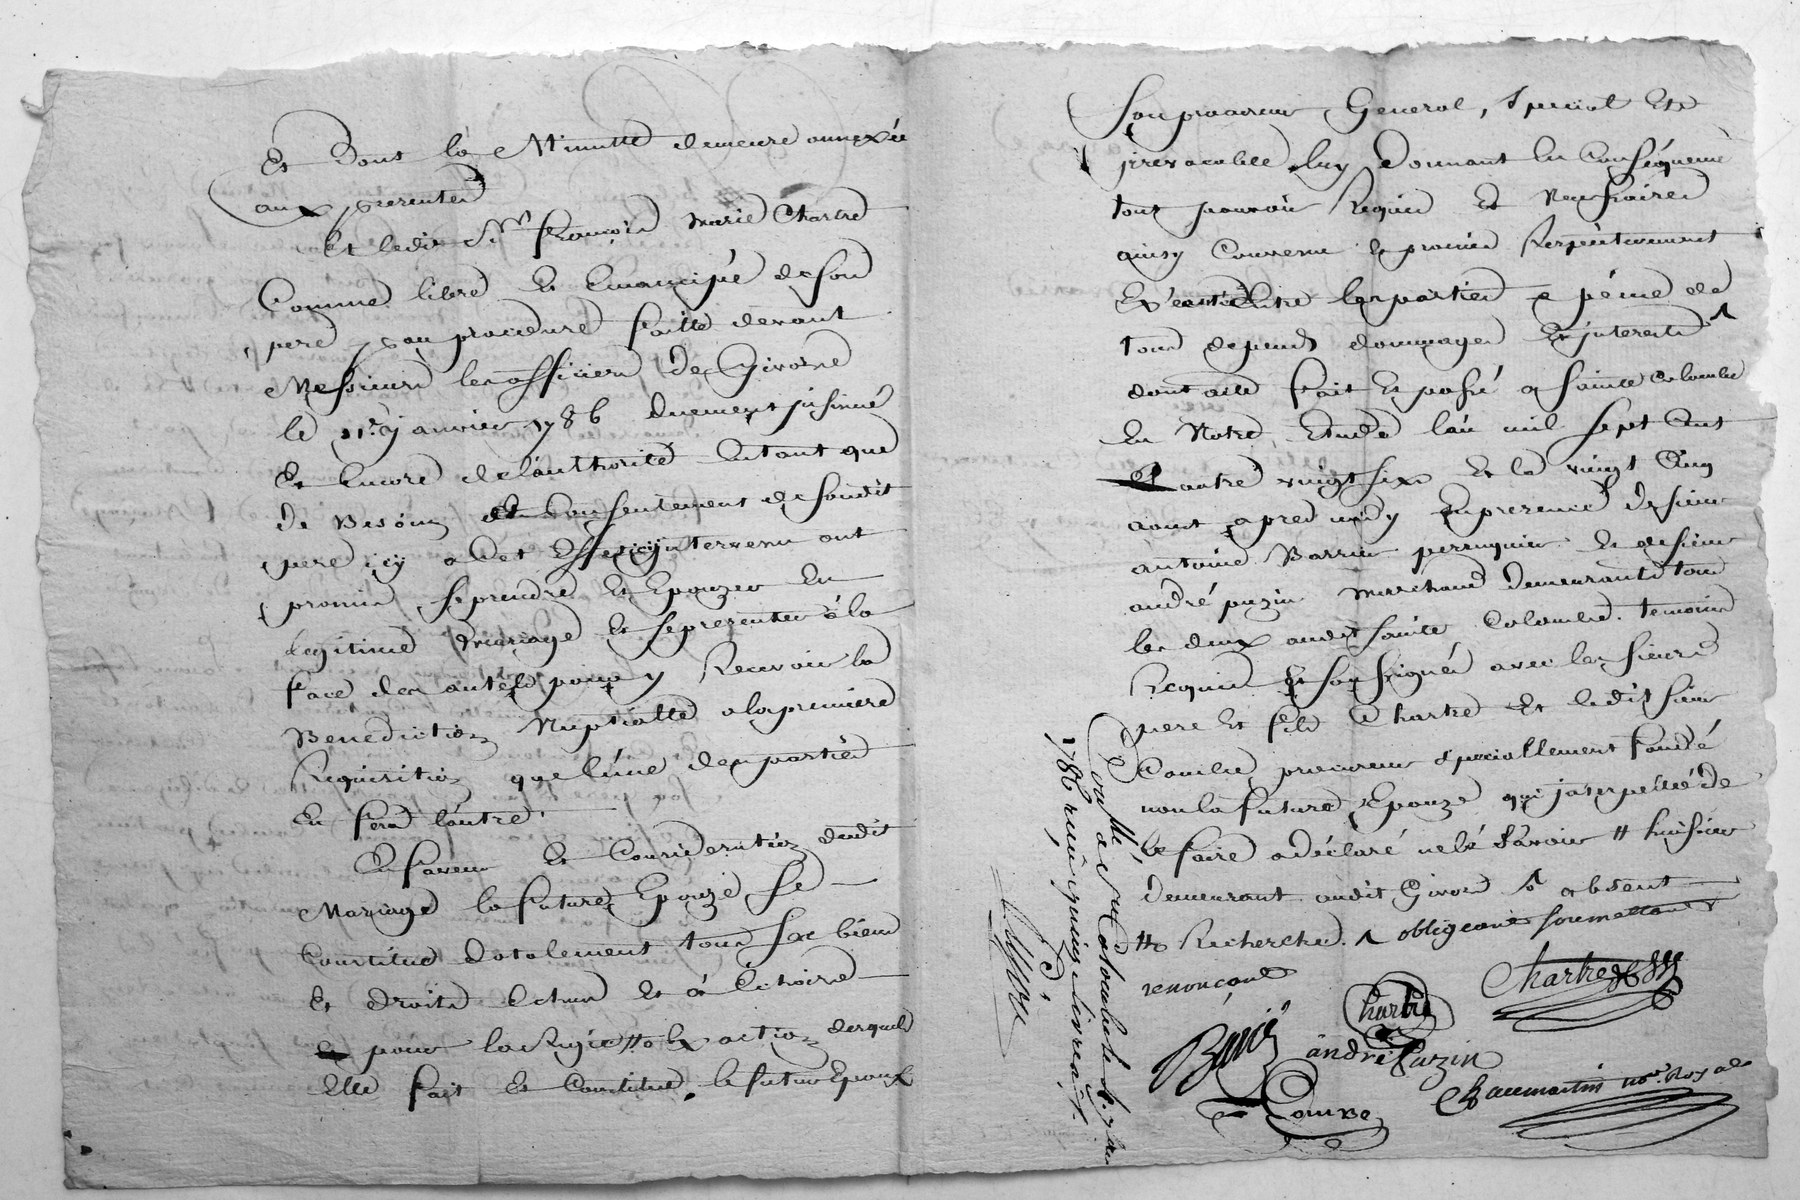 Et dont la Minutte demeure annexée
aux presentes
Et ledit Sr. François Marie Chartre
Comme libre Et Emancipé de son
pere par procedure faitte devant
Messieurs les officiers de Givors
le janvier 1786 duement jnsinué
Et Encore de l'authorité Entant que
de Besoin Et Consentement de sondit
pere jcy a Cet Effet jntervenu ont
promis se prendre Et Epouzer En
legitime Mariage Et se presenter à la
face des autels pour y Recevoir la
Benediction Nuptialle a la premiere
Requisition que l'une des parties
En fera l'autre
En faveur Et Consideration dudit
Mariage la future Epouze se
Constitue dotalement tous ses biens
Et droits Echus Et à Echoir
pour la Regie # Exaction desquels
Elle fait Et Constitue le futur Epoux
Son procureur General, special Et
jrrevocable luy donnant En Conséquence
tout pouvoir Requis Et Necessaire
ainsy Convenu Et promis Respectivement
Executer Entre les parties a peine de
tous depends dommages Et jnterests
dont acte fait Et passé a sainte Colombe
En Notre Etude l'an mil sept Cent
quatre vingt six Et le vingt Cinq
aout apres midy En presence de sieur
antoine Barrie perruquier Et de sieur
andré puzin Marchand demeurants tous
les deux audit sainte Colombe temoins
Requis Et soussignés avec les sieurs
pere Et fils Chartre Et ledit sieur
Combe procureur speciallement fondé
non la future Epouze qui jnterpellée de
le faire a déclaré ne le savoir # huissier
demeurant audit Givors absent
# Recherche obligeant soumettant
renonçant
Chartre
Chartre fils
Barrié
andré Puzin
Combe
Chaumartin nore. Royal
Controllé a Ste Colombe le
1786 reçu quinze livres